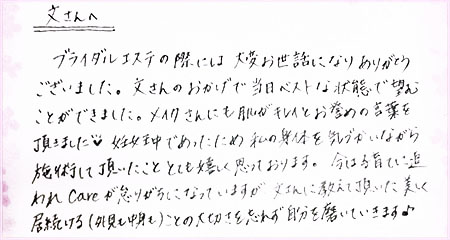 文さんへ
ブライダルエステの際には大変お世話になりありがとう
ございました。文さんのおかげで当日ベストな状態で望む
ことができました。メイクさんにも肌がキレイとお誉めの言葉を
頂きました♥ 妊娠中であったため私の身体を気づかいながら
施術して頂いたこととても嬉しく思っております。今は子育てに追
われCareが怠りがちになっていますが文さんに教えて頂いた美しく
居続ける(外見も中身も)ことの大切さを忘れず自分を磨いていきます♪